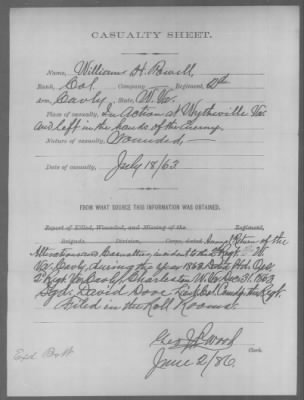 CASUALTY SHEET.
Name, William H. Powell,
Rank, Col. Company Regiment, 2d
Arm, Cavly, State, W. Va.
Place of casualty, In Action at Wytheville Va.
and left in the hands of the Enemy.
Nature of casualty, Wounded,—
Date of casualty, July 18/63
FROM WHAT SOURCE THIS INFORMATION WAS OBTAINED.
Report of Killed, Wounded, and Missing of the Regiment,
Brigade, Division, Corps, dated Annual Return of the
Alterations & Casualties incident to the 2d Regt. W.
Va. Cavly, during the year 1863. Dated Hd. Qrs.
2d Regt. Va. Cavly, Charleston W. Va. Dec 31, 1863
Sgd. David Dove Lieut Col Comdg the Regt.
Filed in the Roll Rooms.
Geo. Wood
Clerk.
June 2/86.
Exd